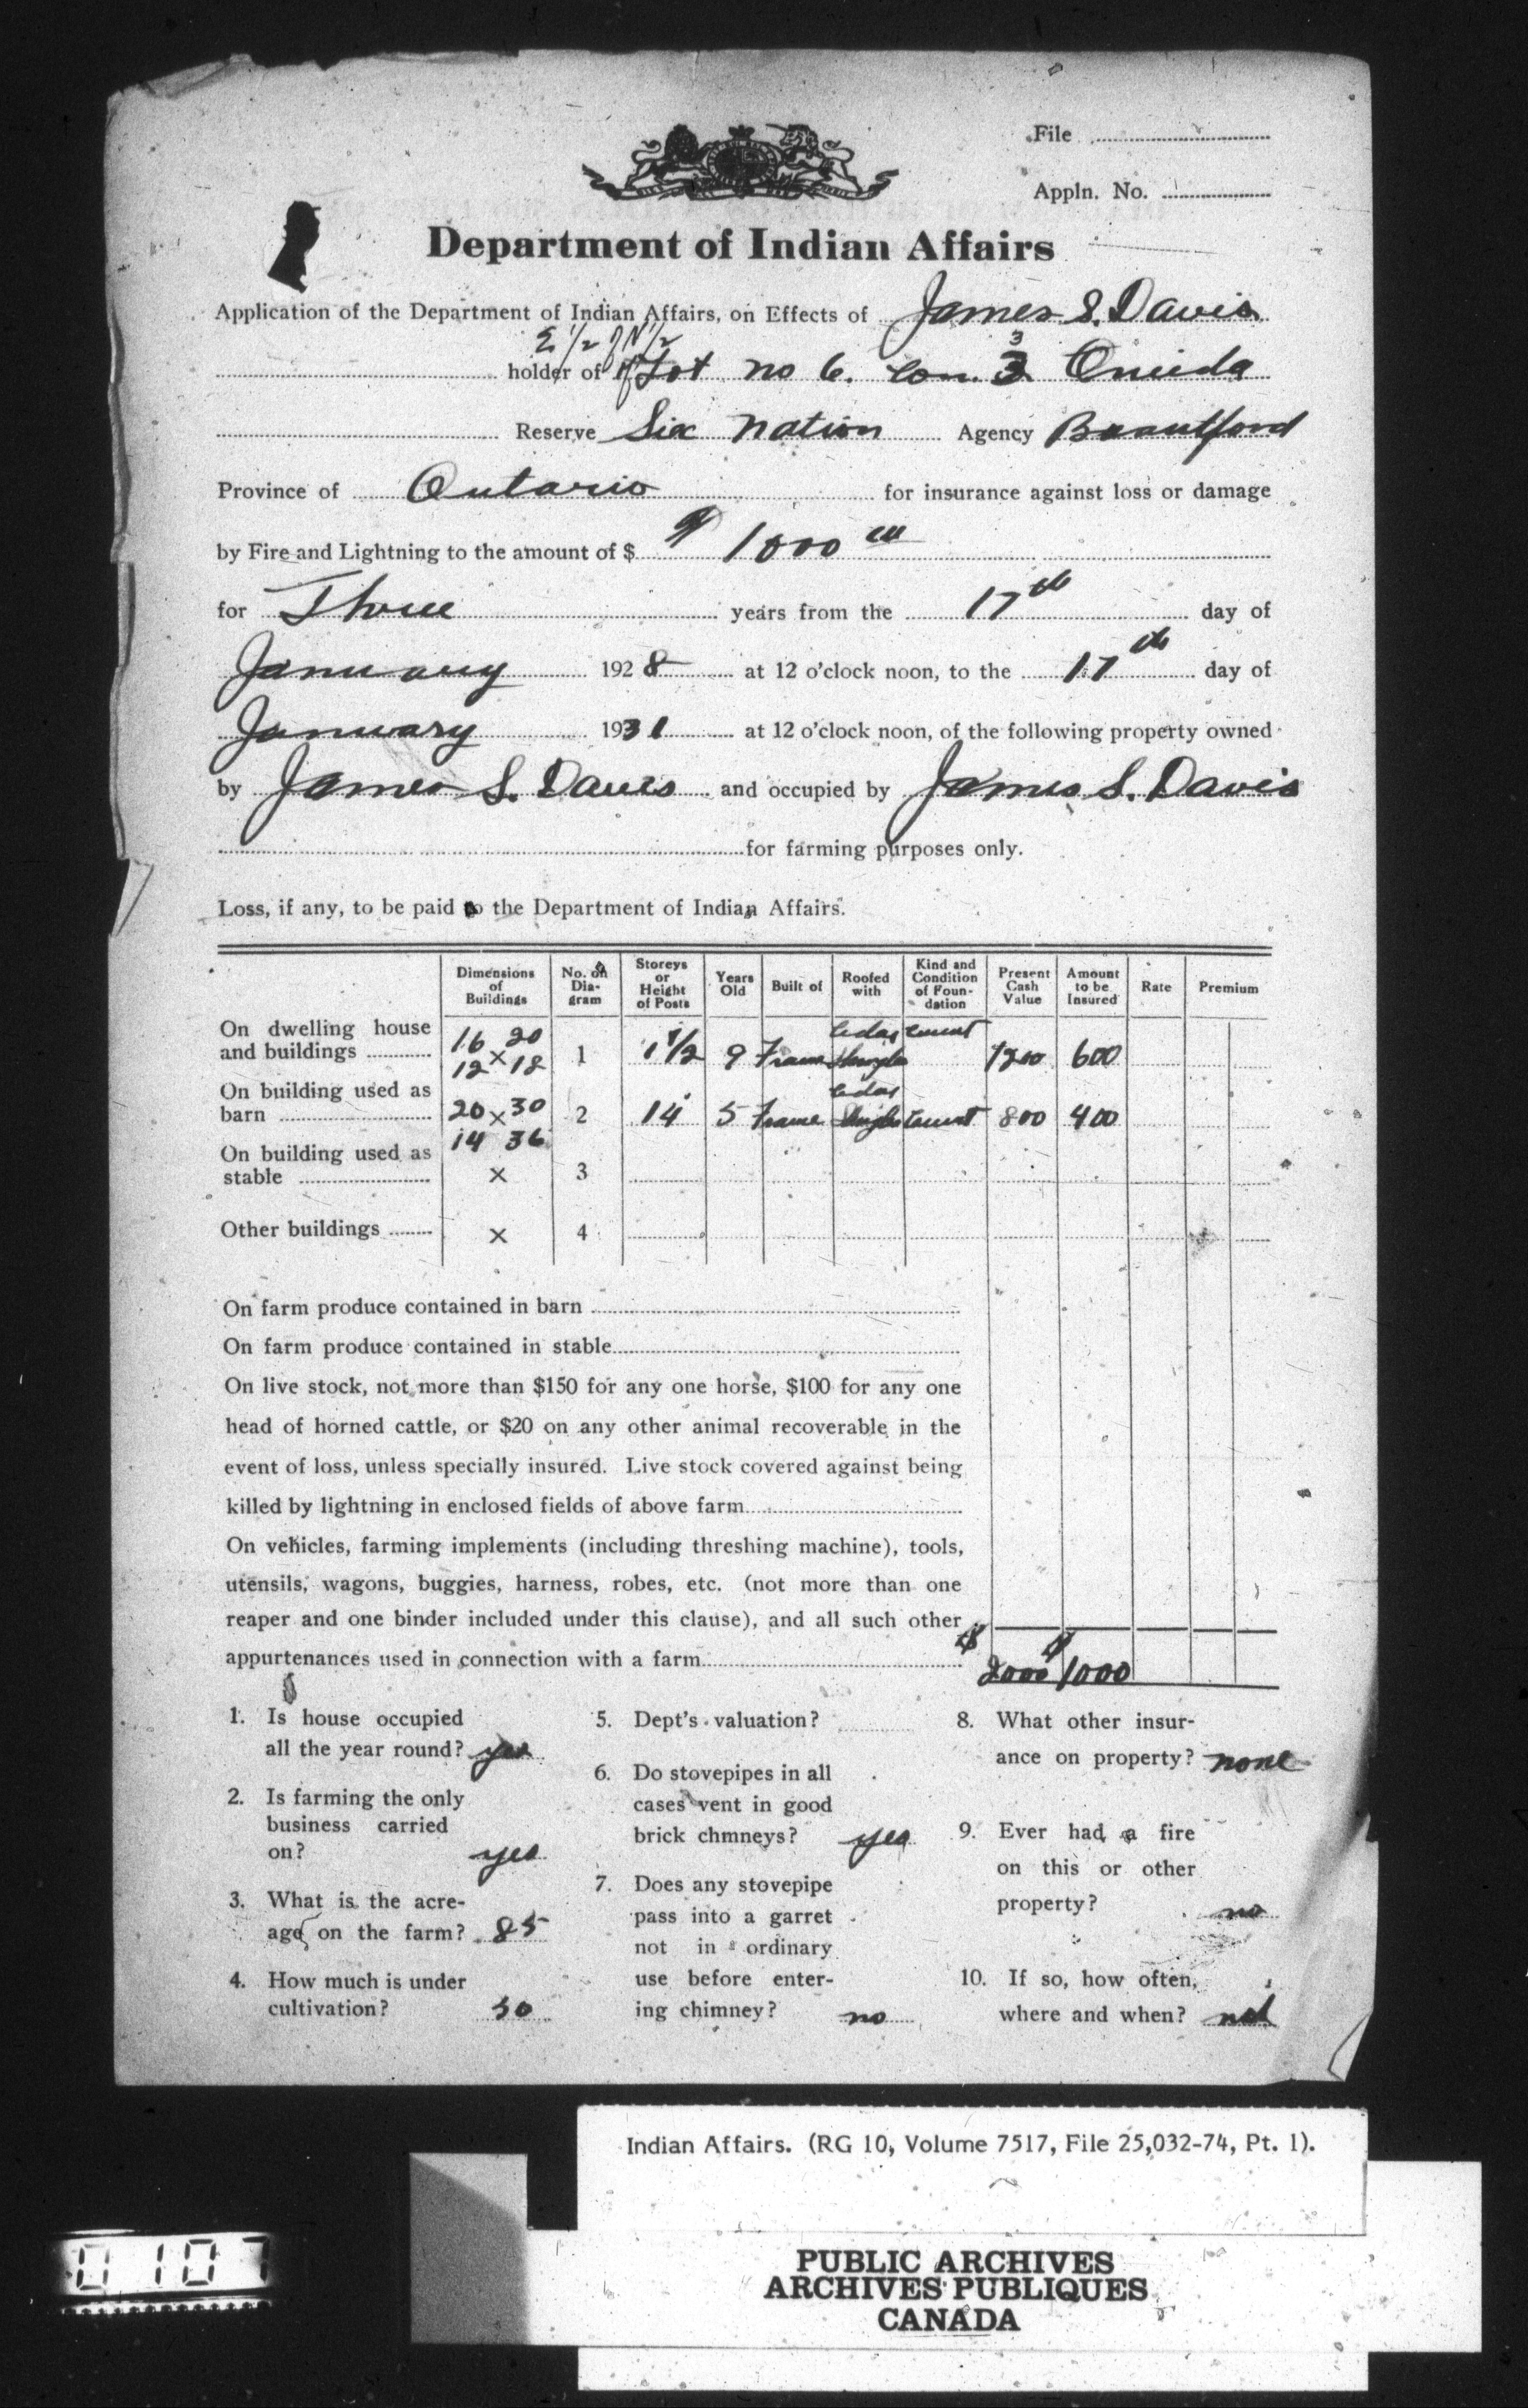 File
Appln. No.
Department of Indian Affairs
Application of the Department of Indian Affairs, on Effects of James S. Davis
E 1/2 of N 1/2
holder of Lot no 6. Con. 3 Oneida
3
Reserve Six Nation Agency Brantford
Province of Ontario for insurance against loss or damage
by Fire and Lightning to the amount of $ $ 1000 00
for Three years from the 17th day of
January 1928 at 12 o'clock noon, to the 17th day of
January 1931 at 12 o'clock noon, of the following property owned
by James S. Davis and occupied by James S. Davis
for farming purposes only.
Loss, if any, to be paid to the Department of Indian Affairs.
Dimensions of Buildings No. on Dia-gram Storeys or Height of Posts Years Old Built of Roofed with Kind and Condition of Foun-dation Present Cash Value Amount to be Insured Rate Premium
On dwelling house 16 20 Cedar Cement
and buildings 12 x 18 1 1 1/2 9 Frame Shingles 1200 600
On building used as Cedar
barn 20 x 30 2 14 5 Frame Shingles Cement 800 400
On building used as 14 36
stable x 3
Other buildings x 4
On farm produce contained in barn
On farm produce contained in stable
On live stock, not more than $150 for any one horse, $100 for any one
head of horned cattle, or $20 on any other animal recoverable in the
event of loss, unless specially insured. Live stock covered against being
killed by lightning in enclosed fields of above farm
On vehicles, farming implements (including threshing machine), tools,
utensils, wagons, buggies, harness, robes, etc. (not more than one
reaper and one binder included under this clause), and all such other
appurtenances used in connection with a farm $ 2000 $ 1000
1. Is house occupied
all the year round? yes
2. Is farming the only
business carried
on? yes
3. What is the acre-
age on the farm? 85
4. How much is under
cultivation? 50
5. Dept's valuation?
6. Do stovepipes in all
cases vent in good
brick chmneys? yes
7. Does any stovepipe
pass into a garret
not in ordinary
use before enter-
ing chimney? no
8. What other insur-
ance on property? none
9. Ever had a fire
on this or other
property? no
10. If so, how often,
where and when?
Indian Affairs. (RG 10, Volume 7517, File 25,032-74, Pt. 1).
PUBLIC ARCHIVES
ARCHIVES PUBLIQUES
CANADA
0 10 7